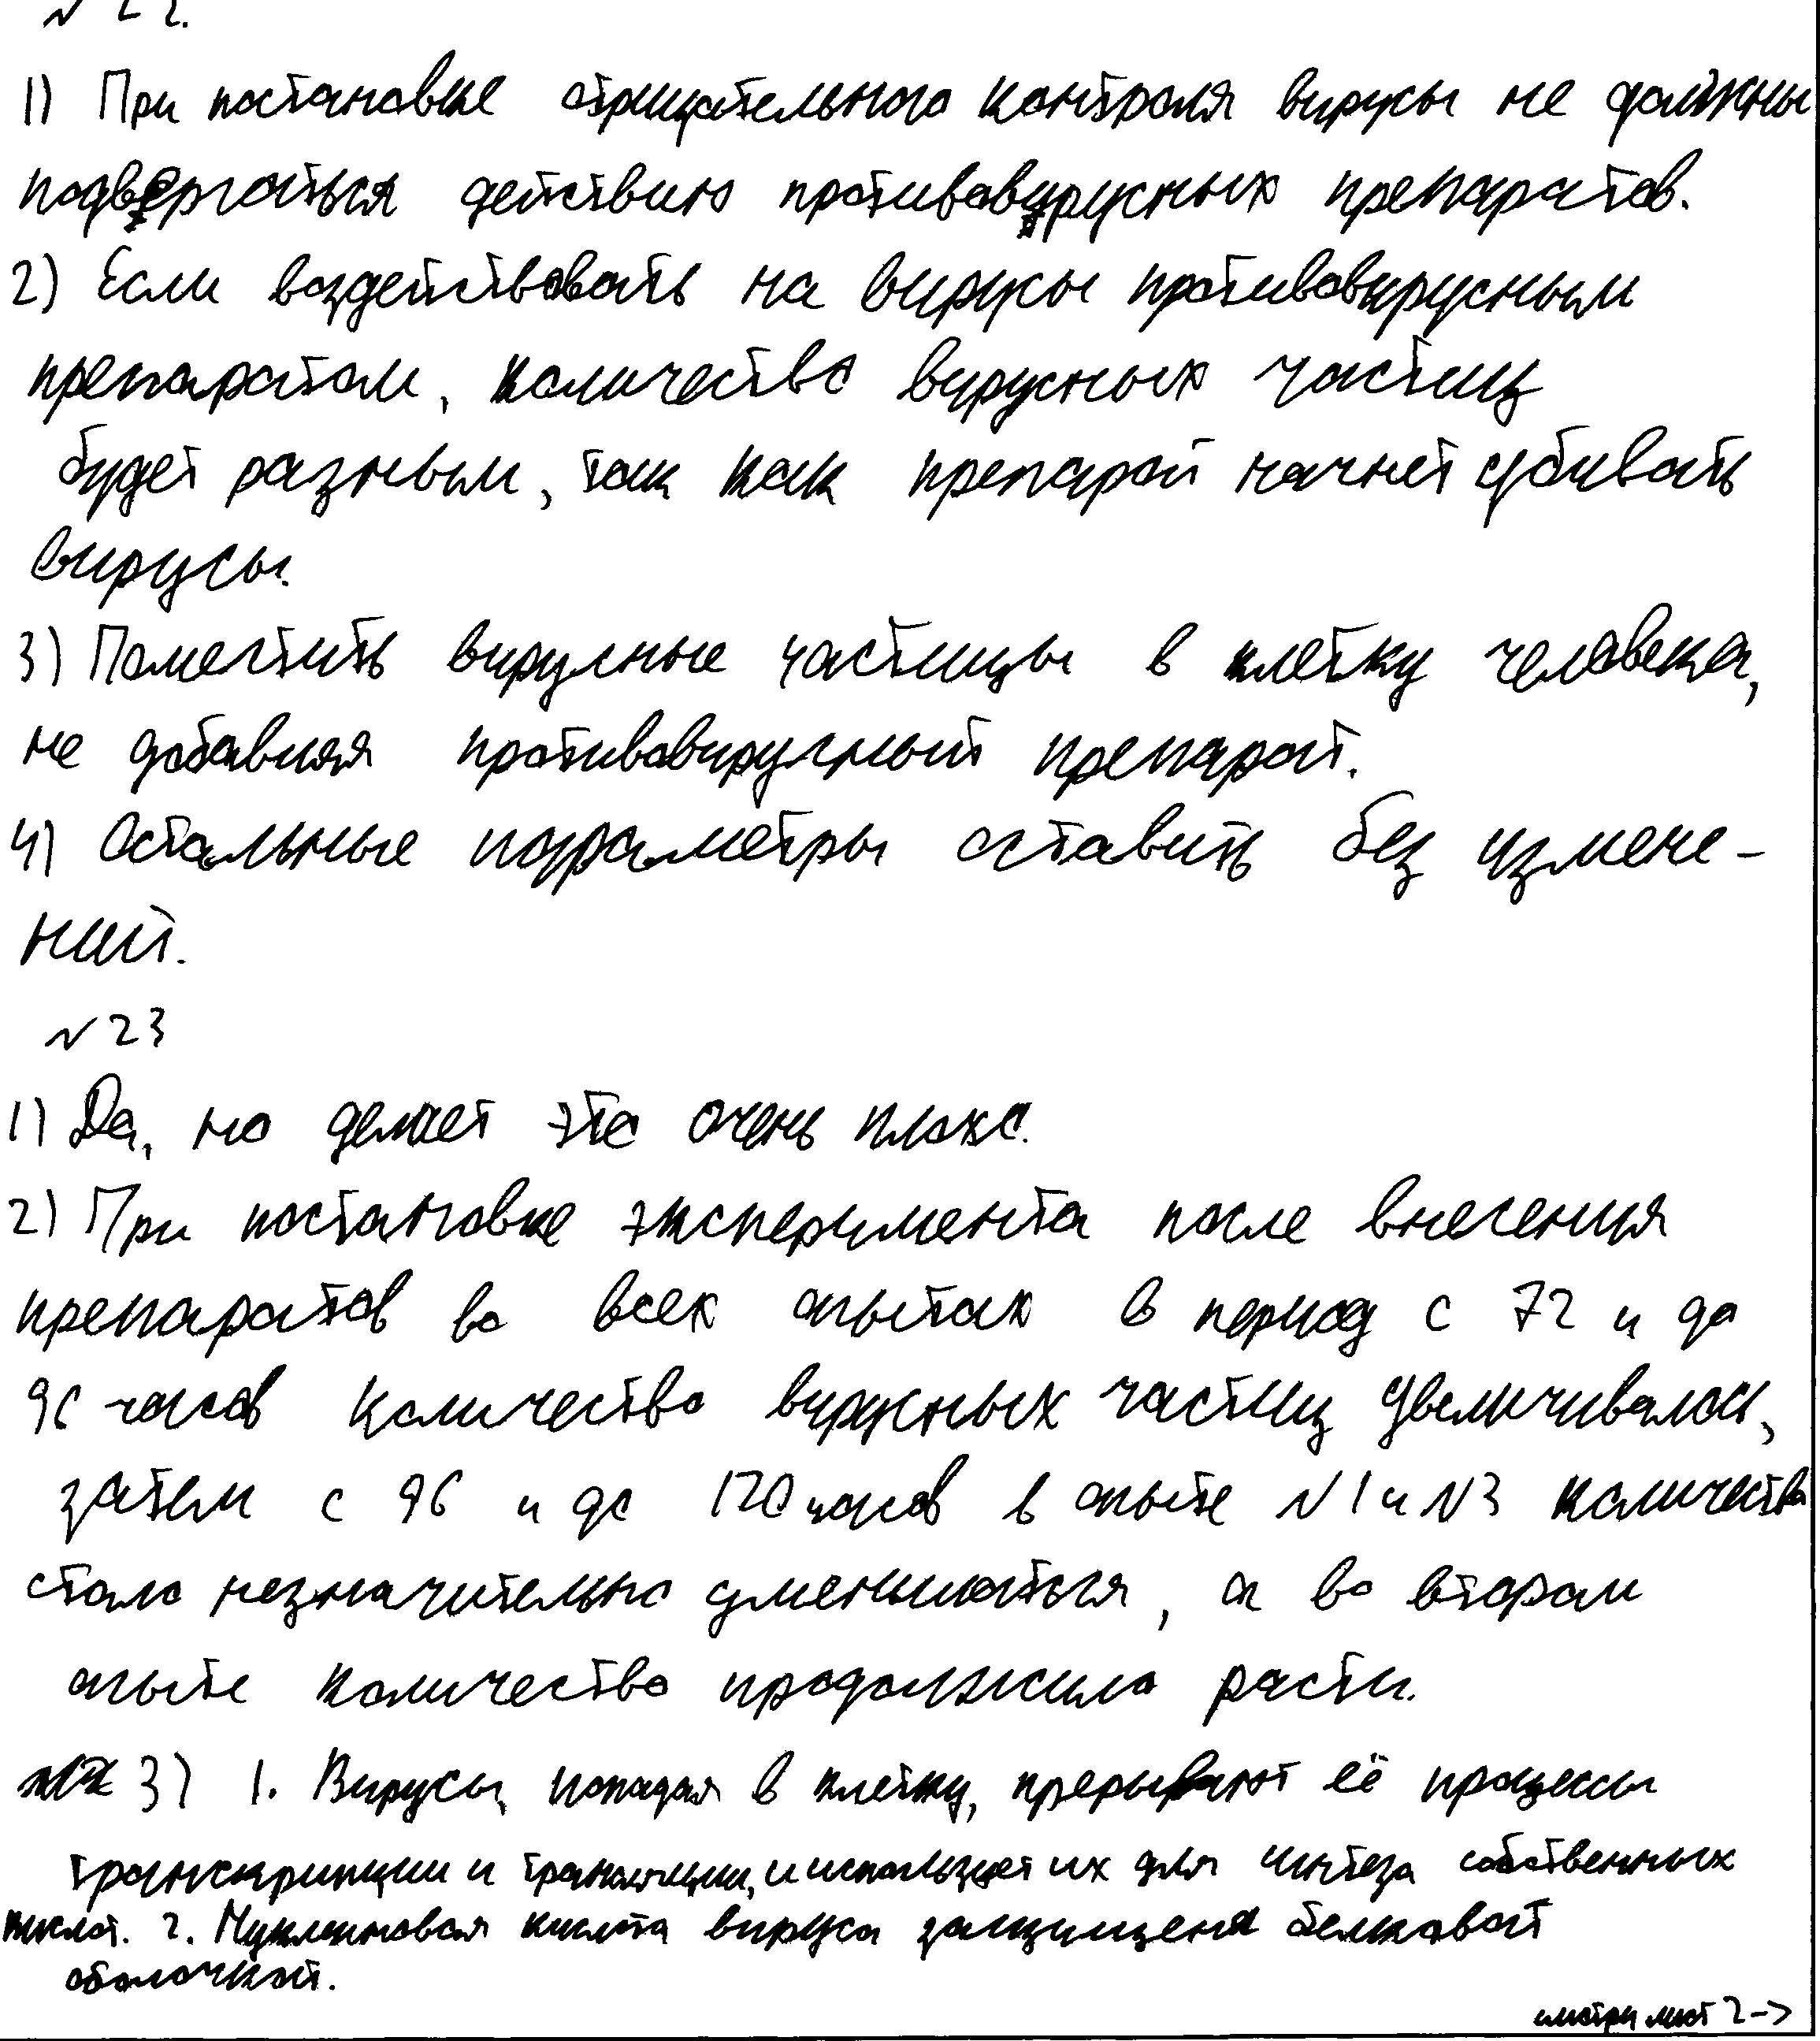 № 22.
1) При постановке отрицательного контроля вирусы не должны
подвергаться действию противовирусных препаратов.
2) Если воздействовать на вирусы противовирусным
препаратом, количество вирусных частиц
будет разным, так как препарат начнет убивать
вирусы.
3) Поместить вирусные частицы в клетку человека,
не добавляя противовирусный препарат.
4) Остальные параметры оставить без измене-
ний.
№ 23
1) Да, но делает это очень плохо.
2) При постановке эксперимента после внесения
препаратов во всех опытах в период с 72 и до
96 часов количество вирусных частиц увеличивалось,
затем с 96 и до 120 часов в опыте №1 и №3 количество
стало незначительно уменьшаться, а во втором
опыте количество продолжило расти.
3) 1. Вирусы, попадая в клетку, прерывают её процессы
транскрипции и трансляции, и использует их для синтеза собственных
кислот. 2. Нуклеиновая кислота вируса защищена белковой
оболочкой.
смотри лист 2 ->